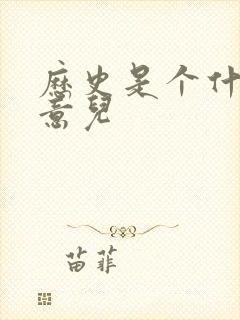 歷史是个什
意兒
苗菲